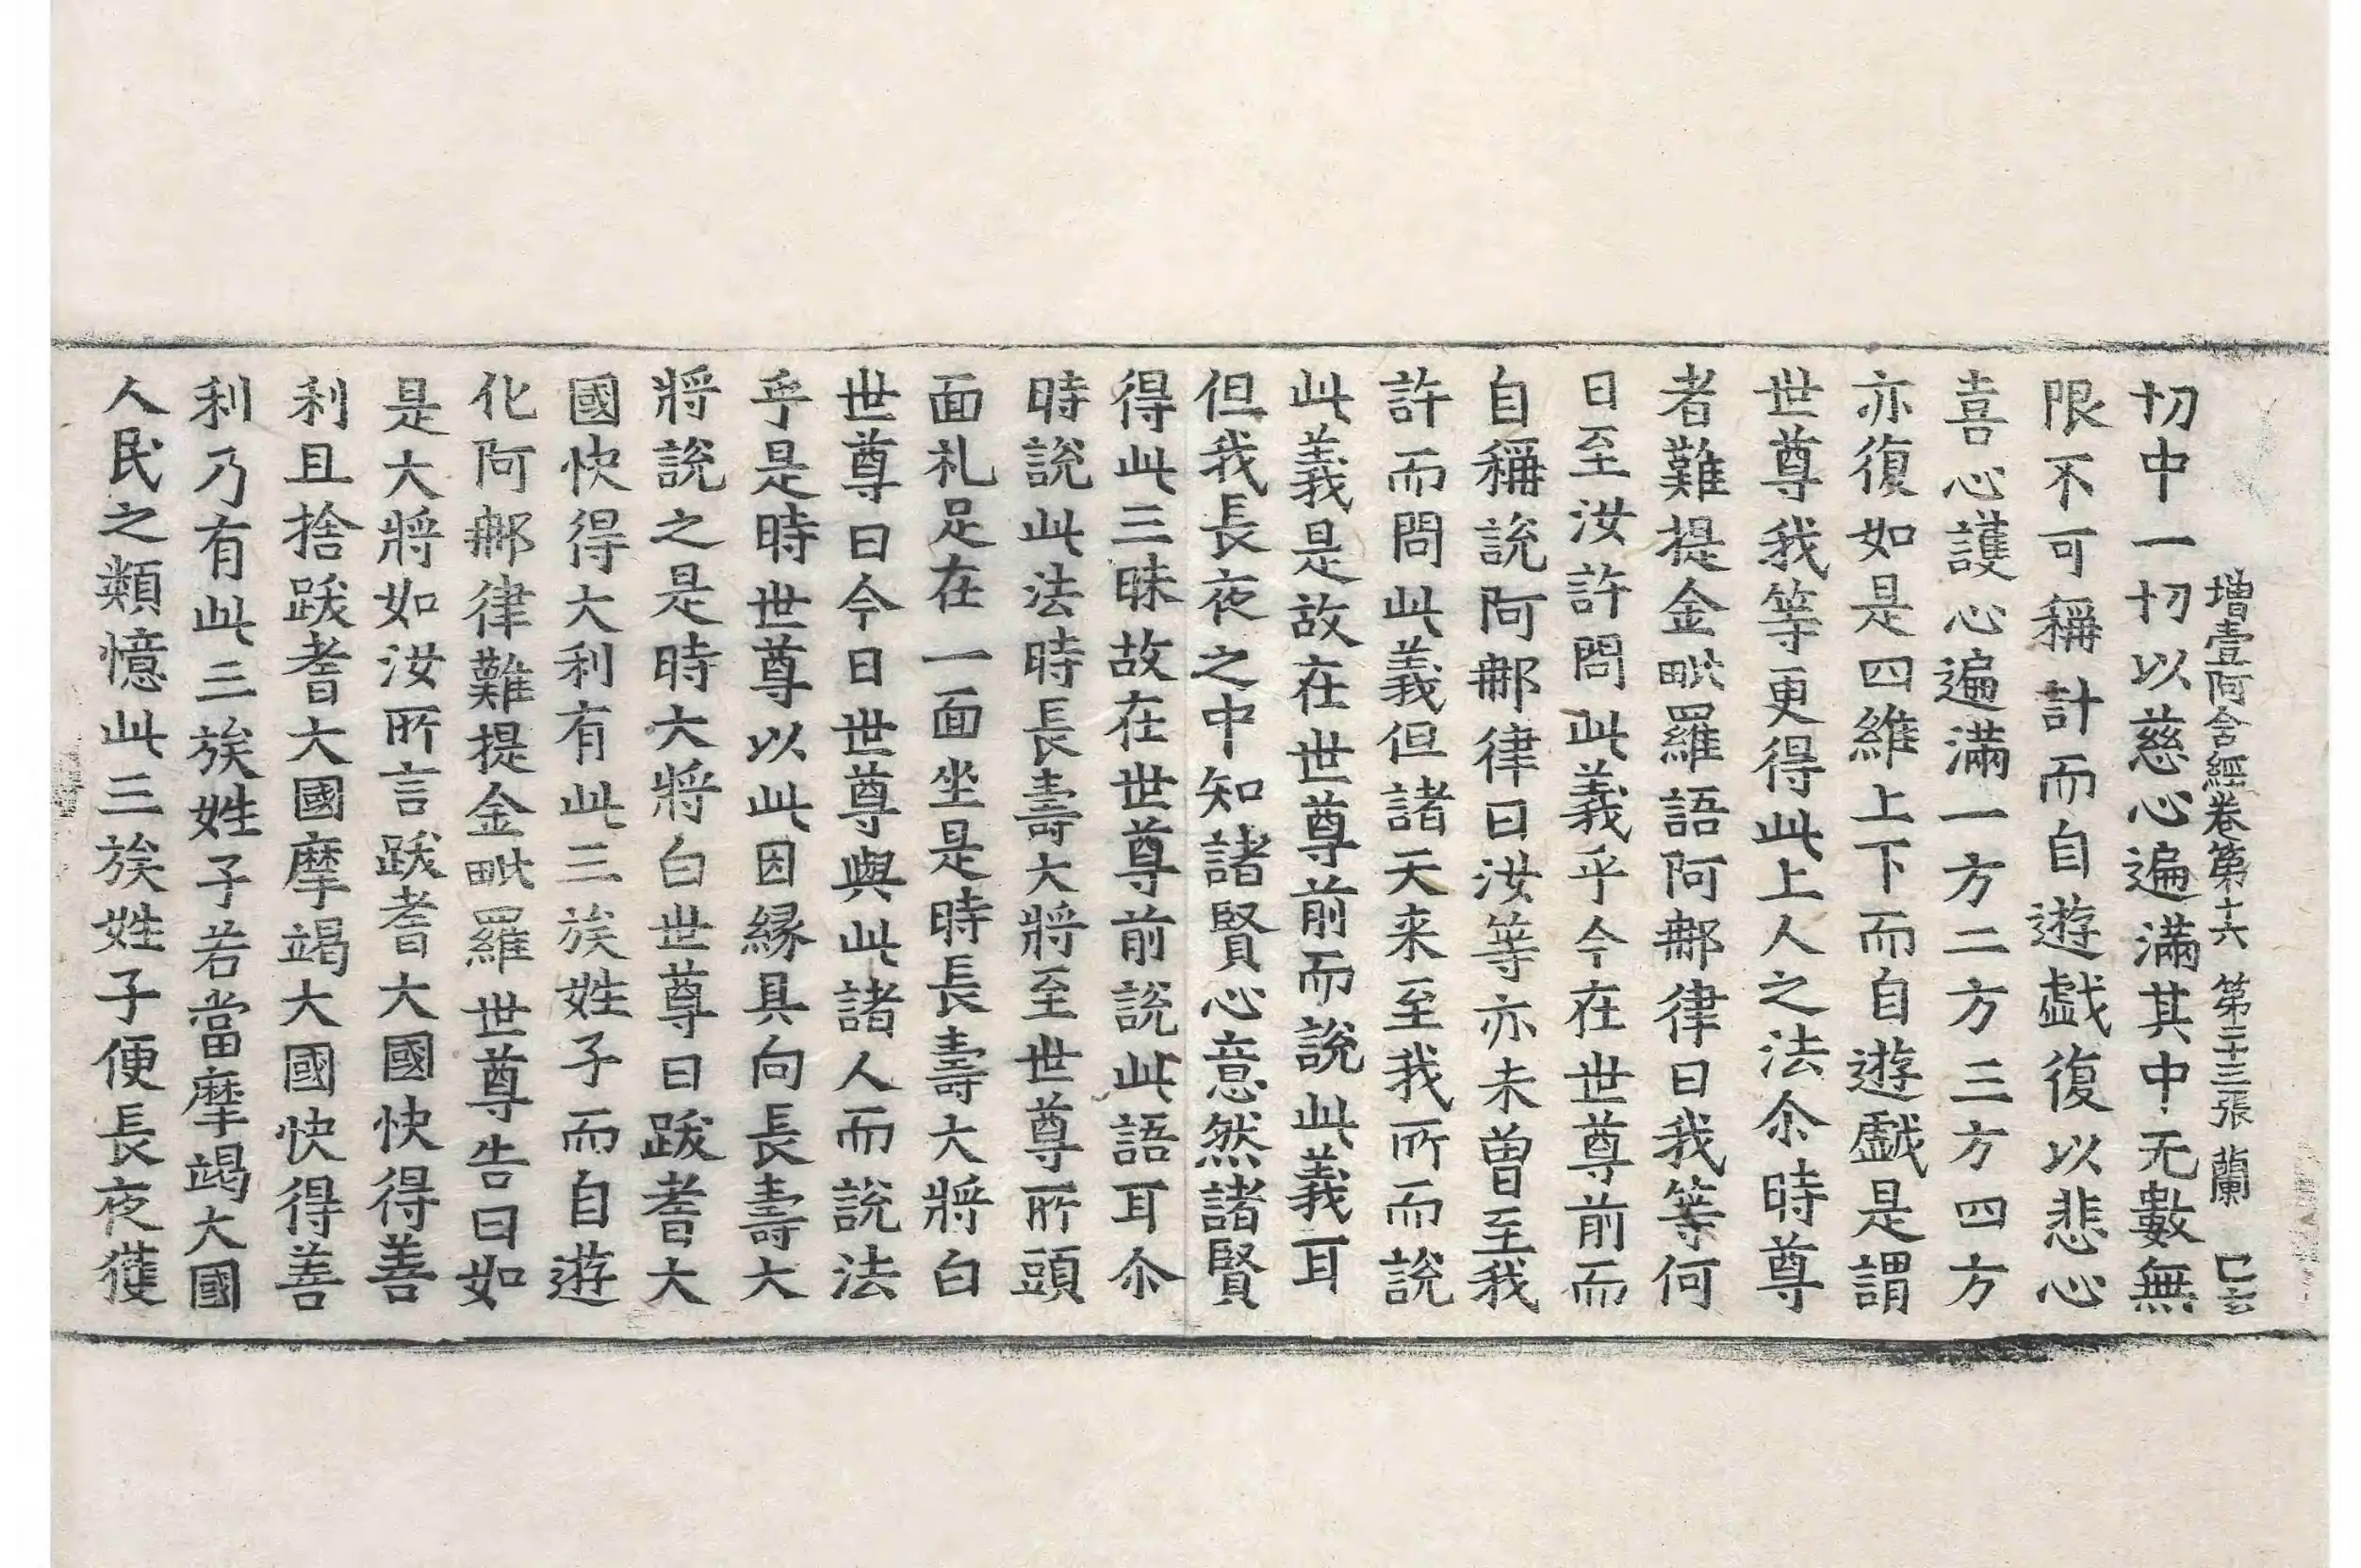 增壹阿含經卷第十六 第二十三張 蘭 己玄
切中一切以慈心遍滿其中无數無
限不可稱計而自遊戯復以悲心
喜心護心遍滿一方二方三方四方
亦復如是四維上下而自遊戱是謂
世尊我等更得此上人之法尒時尊
者難提金毗羅語阿那律曰我等何
日至汝許問此義乎今在世尊前而
自稱說阿那律曰汝等亦未曾至我
許而問此義但諸天来至我所而說
此義是故在世尊前而說此義耳
但我長夜之中知諸賢心意然諸賢
得此三昧故在世尊前說此語耳尒
時說此法時長壽大將至世尊所頭
面札足在一面坐是時長壽大將白
世尊曰今日世尊與此諸人而說法
乎是時世尊以此因緣具向長壽大
將說之是時大將白世尊曰跋耆大
國快得大利有此三族姓子而自遊
化阿那律難提金毗羅世尊告曰如
是大將如汝所言跋耆大國快得善
利且捨跋耆大國摩竭大國快得善
利乃有此三族姓子若當摩竭大國
人民之類憶此三族姓子便長夜獲